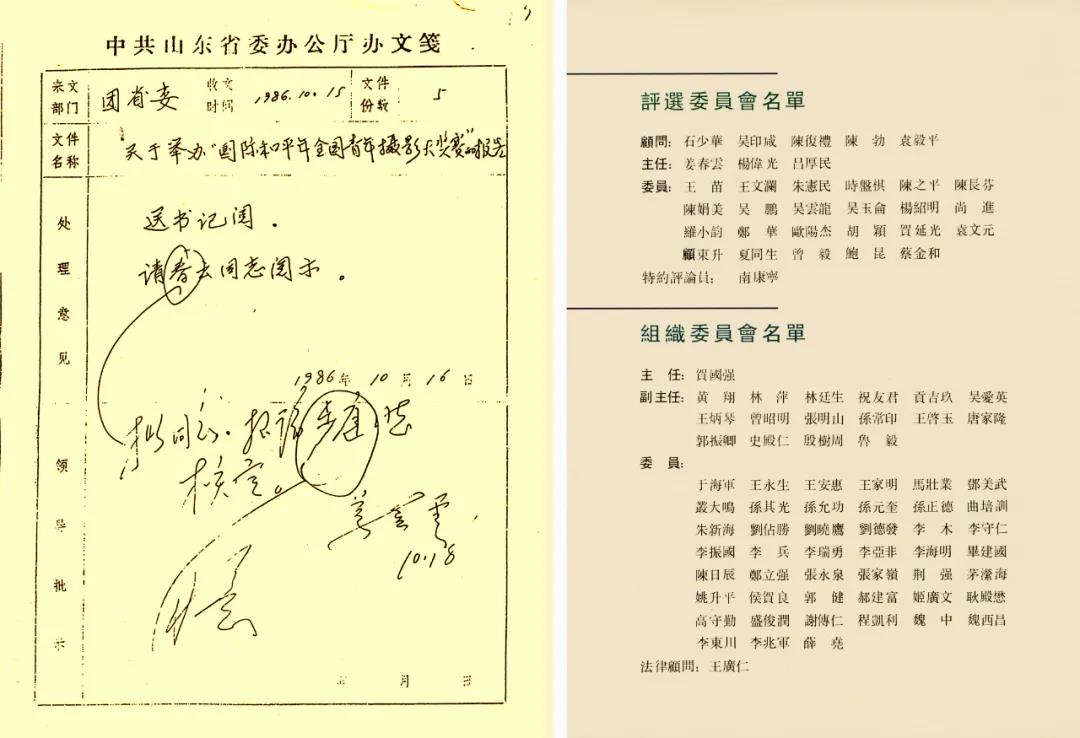 中共山东省委办公厅办文笺
来文部门 团省委 收文时间 1986.10.15 文件份数 5
文件名称 "关于举办"国际和平年全国青年摄影大奖赛"的报告
处理意见
送书记阅.
请春云同志阅示。
1986年10月16日
领导批示
拟同意.
核定。
姜春云
10.18
年 月 日
評選委員會名單
顧問: 石少華 吴印咸 陳復禮 陳勃 袁毅平
主任: 姜春雲 楊偉光 吕厚民
委員: 王苗 王文瀾 朱憲民 時盤棋 陳之平 陳長芬
陳娟美 吴鵬 吴雲龍 吴玉侖 楊紹明 尚進
羅小韵 鄭華 歐陽杰 胡穎 賀延光 袁文元
顧東升 夏同生 曾毅 鮑昆 蔡金和
特約評論員: 南康寧
組織委員會名單
主任: 賀國强
副主任: 黄翔 林萍 林廷生 祝友君 貢吉玖 吴愛英
王炳琴 曾昭明 張明山 孫常印 王啓玉 唐家隆
郭振卿 史殿仁 殷樹周 魯毅
委員:
于海軍 王永生 王安惠 王家明 馬壯業 鄧美武
叢大鳴 孫其光 孫允功 孫元奎 孫正德 曲培訓
朱新海 劉佔勝 劉曉鷹 劉德發 李木 李守仁
李振國 李兵 李瑞勇 李亞非 李海明 畢建國
陳日辰 鄭立强 張永泉 張家嶺 荆强 茅瀠海
姚升平 侯賀良 郭健 郝建富 姬廣文 耿殿懋
高守勤 盛俊潤 謝傳仁 程凱利 魏中 魏西昌
李東川 李兆軍 薛堯
法律顧問: 王廣仁